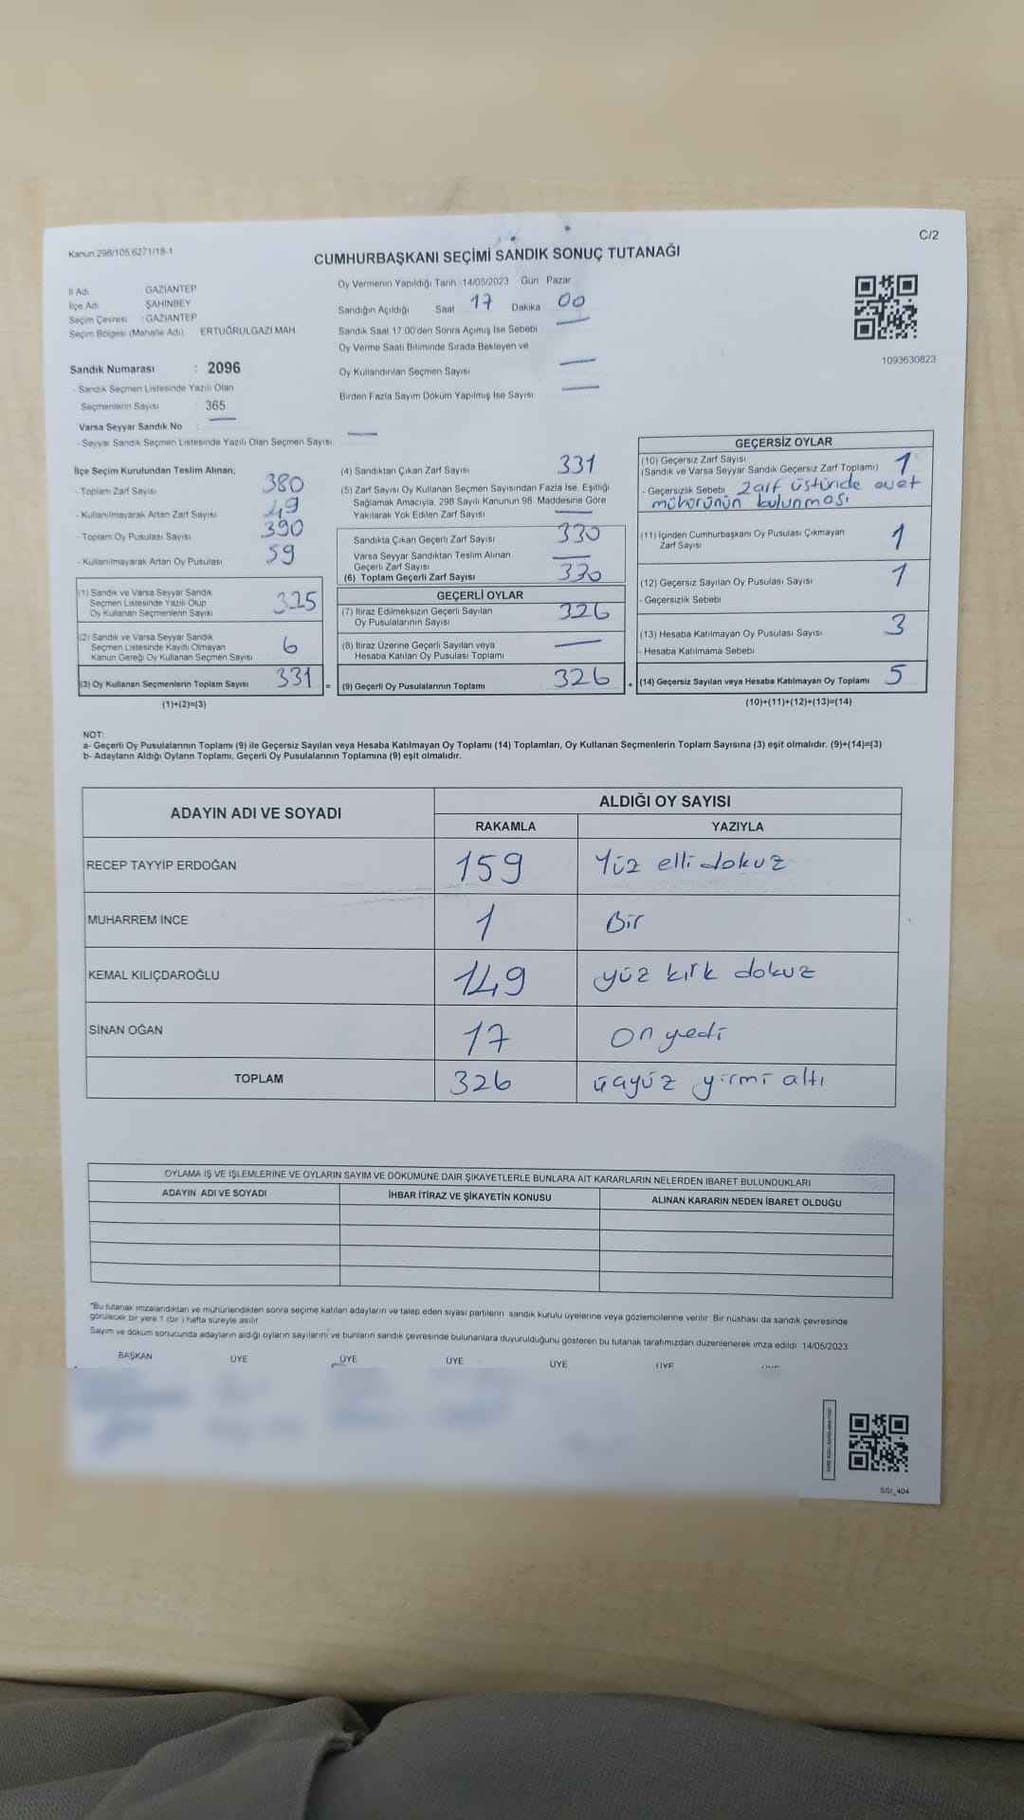 C/2
Kanun:298/105,6271/18-1
CUMHURBAŞKANI SEÇİMİ SANDIK SONUÇ TUTANAĞI
İl Adı GAZİANTEP
İlçe Adı ŞAHİNBEY
Seçim Çevresi : GAZİANTEP
Seçim Bölgesi (Mahalle Adı) ERTUĞRULGAZİ MAH
Sandık Numarası : 2096
- Sandık Seçmen Listesinde Yazılı Olan
Seçmenlerin Sayısı : 365
Varsa Seyyar Sandık No
- Seyyar Sandık Seçmen Listesinde Yazılı Olan Seçmen Sayısı
Oy Vermenin Yapıldığı Tarih :14/05/2023 Gün Pazar
Sandığın Açıldığı Saat 17 Dakika 00
Sandık Saat 17.00'den Sonra Açımış İse Sebebi
Oy Verme Saati Bitiminde Sırada Bekleyen ve
Oy Kullandırılan Seçmen Sayısı
Birden Fazla Sayım Döküm Yapılmış İse Sayısı
1093630823
İlçe Seçim Kurulundan Teslim Alınan;
- Toplam Zarf Sayısı 380
- Kullanılmayarak Artan Zarf Sayısı 49
- Toplam Oy Pusulası Sayısı 390
- Kullanılmayarak Artan Oy Pusulası 59
(1) Sandık ve Varsa Seyyar Sandık
Seçmen Listesinde Yazılı Olup
Oy Kullanan Seçmenlerin Sayısı 325
(2) Sandık ve Varsa Seyyar Sandık
Seçmen Listesinde Kaydı Olmayan
Kanun Gereği Oy Kullanan Seçmen Sayısı 6
(3) Oy Kullanan Seçmenlerin Toplam Sayısı 331 =
(1)+(2)=(3)
(4) Sandıktan Çıkan Zarf Sayısı 331
(5) Zarf Sayısı Oy Kullanan Seçmen Sayısından Fazla İse, Eşitliği
Sağlamak Amacıyla, 298 Sayılı Kanunun 98. Maddesine Göre
Yakılarak Yok Edilen Zarf Sayısı
Sandıkta Çıkan Geçerli Zarf Sayısı 330
Varsa Seyyar Sandıktan Teslim Alınan
Geçerli Zarf Sayısı
(6) Toplam Geçerli Zarf Sayısı 330
GEÇERLİ OYLAR
(7) İtiraz Edilmeksizin Geçerli Sayılan
Oy Pusulalarının Sayısı 326
(8) İtiraz Üzerine Geçerli Sayılan veya
Hesaba Katılan Oy Pusulası Toplamı
(9) Geçerli Oy Pusulalarının Toplamı 326
GEÇERSİZ OYLAR
(10) Geçersiz Zarf Sayısı
(Sandık ve Varsa Seyyar Sandık Geçersiz Zarf Toplamı) 1
- Geçersizlik Sebebi zarf üstünde evet
mührünün bulunması
(11) İçinden Cumhurbaşkanı Oy Pusulası Çıkmayan
Zarf Sayısı 1
(12) Geçersiz Sayılan Oy Pusulası Sayısı 1
- Geçersizlik Sebebi
(13) Hesaba Katılmayan Oy Pusulası Sayısı 3
- Hesaba Katılmama Sebebi
(14) Geçersiz Sayılan veya Hesaba Katılmayan Oy Toplamı 5
(10)+(11)+(12)+(13)=(14)
NOT:
a- Geçerli Oy Pusulalarının Toplamı (9) ile Geçersiz Sayılan veya Hesaba Katılmayan Oy Toplamı (14) Toplamları, Oy Kullanan Seçmenlerin Toplam Sayısına (3) eşit olmalıdır. (9)+(14)=(3)
b- Adayların Aldığı Oyların Toplamı, Geçerli Oy Pusulalarının Toplamına (9) eşit olmalıdır.
ADAYIN ADI VE SOYADI ALDIĞI OY SAYISI
RAKAMLA YAZIYLA
RECEP TAYYİP ERDOĞAN 159 Yüz elli dokuz
MUHARREM İNCE 1 Bir
KEMAL KILIÇDAROĞLU 149 yüz kırk dokuz
SİNAN OĞAN 17 on yedi
TOPLAM 326 üçyüz yirmi altı
OYLAMA İŞ VE İŞLEMLERİNE VE OYLARIN SAYIM VE DÖKÜMÜNE DAİR ŞİKAYETLERLE BUNLARA AİT KARARLARIN NELERDEN İBARET BULUNDUKLARI
ADAYIN ADI VE SOYADI İHBAR İTİRAZ VE ŞİKAYETİN KONUSU ALINAN KARARIN NEDEN İBARET OLDUĞU
*Bu tutanak imzalandıktan ve mühürlendikten sonra seçime katılan adayların ve talep eden siyasi partilerin sandık kurulu üyelerine veya gözlemcilerine verilir. Bir nüshası da sandık çevresinde
görülecek bir yere 1 (bir ) hafta süreyle asılır.
Sayım ve döküm sonucunda adayların aldığı oyların sayılarını ve bunların sandık çevresinde bulunanlara duyurulduğunu gösteren bu tutanak tarafımızdan düzenlenerek imza edildi. 14/05/2023
BAŞKAN ÜYE ÜYE ÜYE ÜYE ÜYE